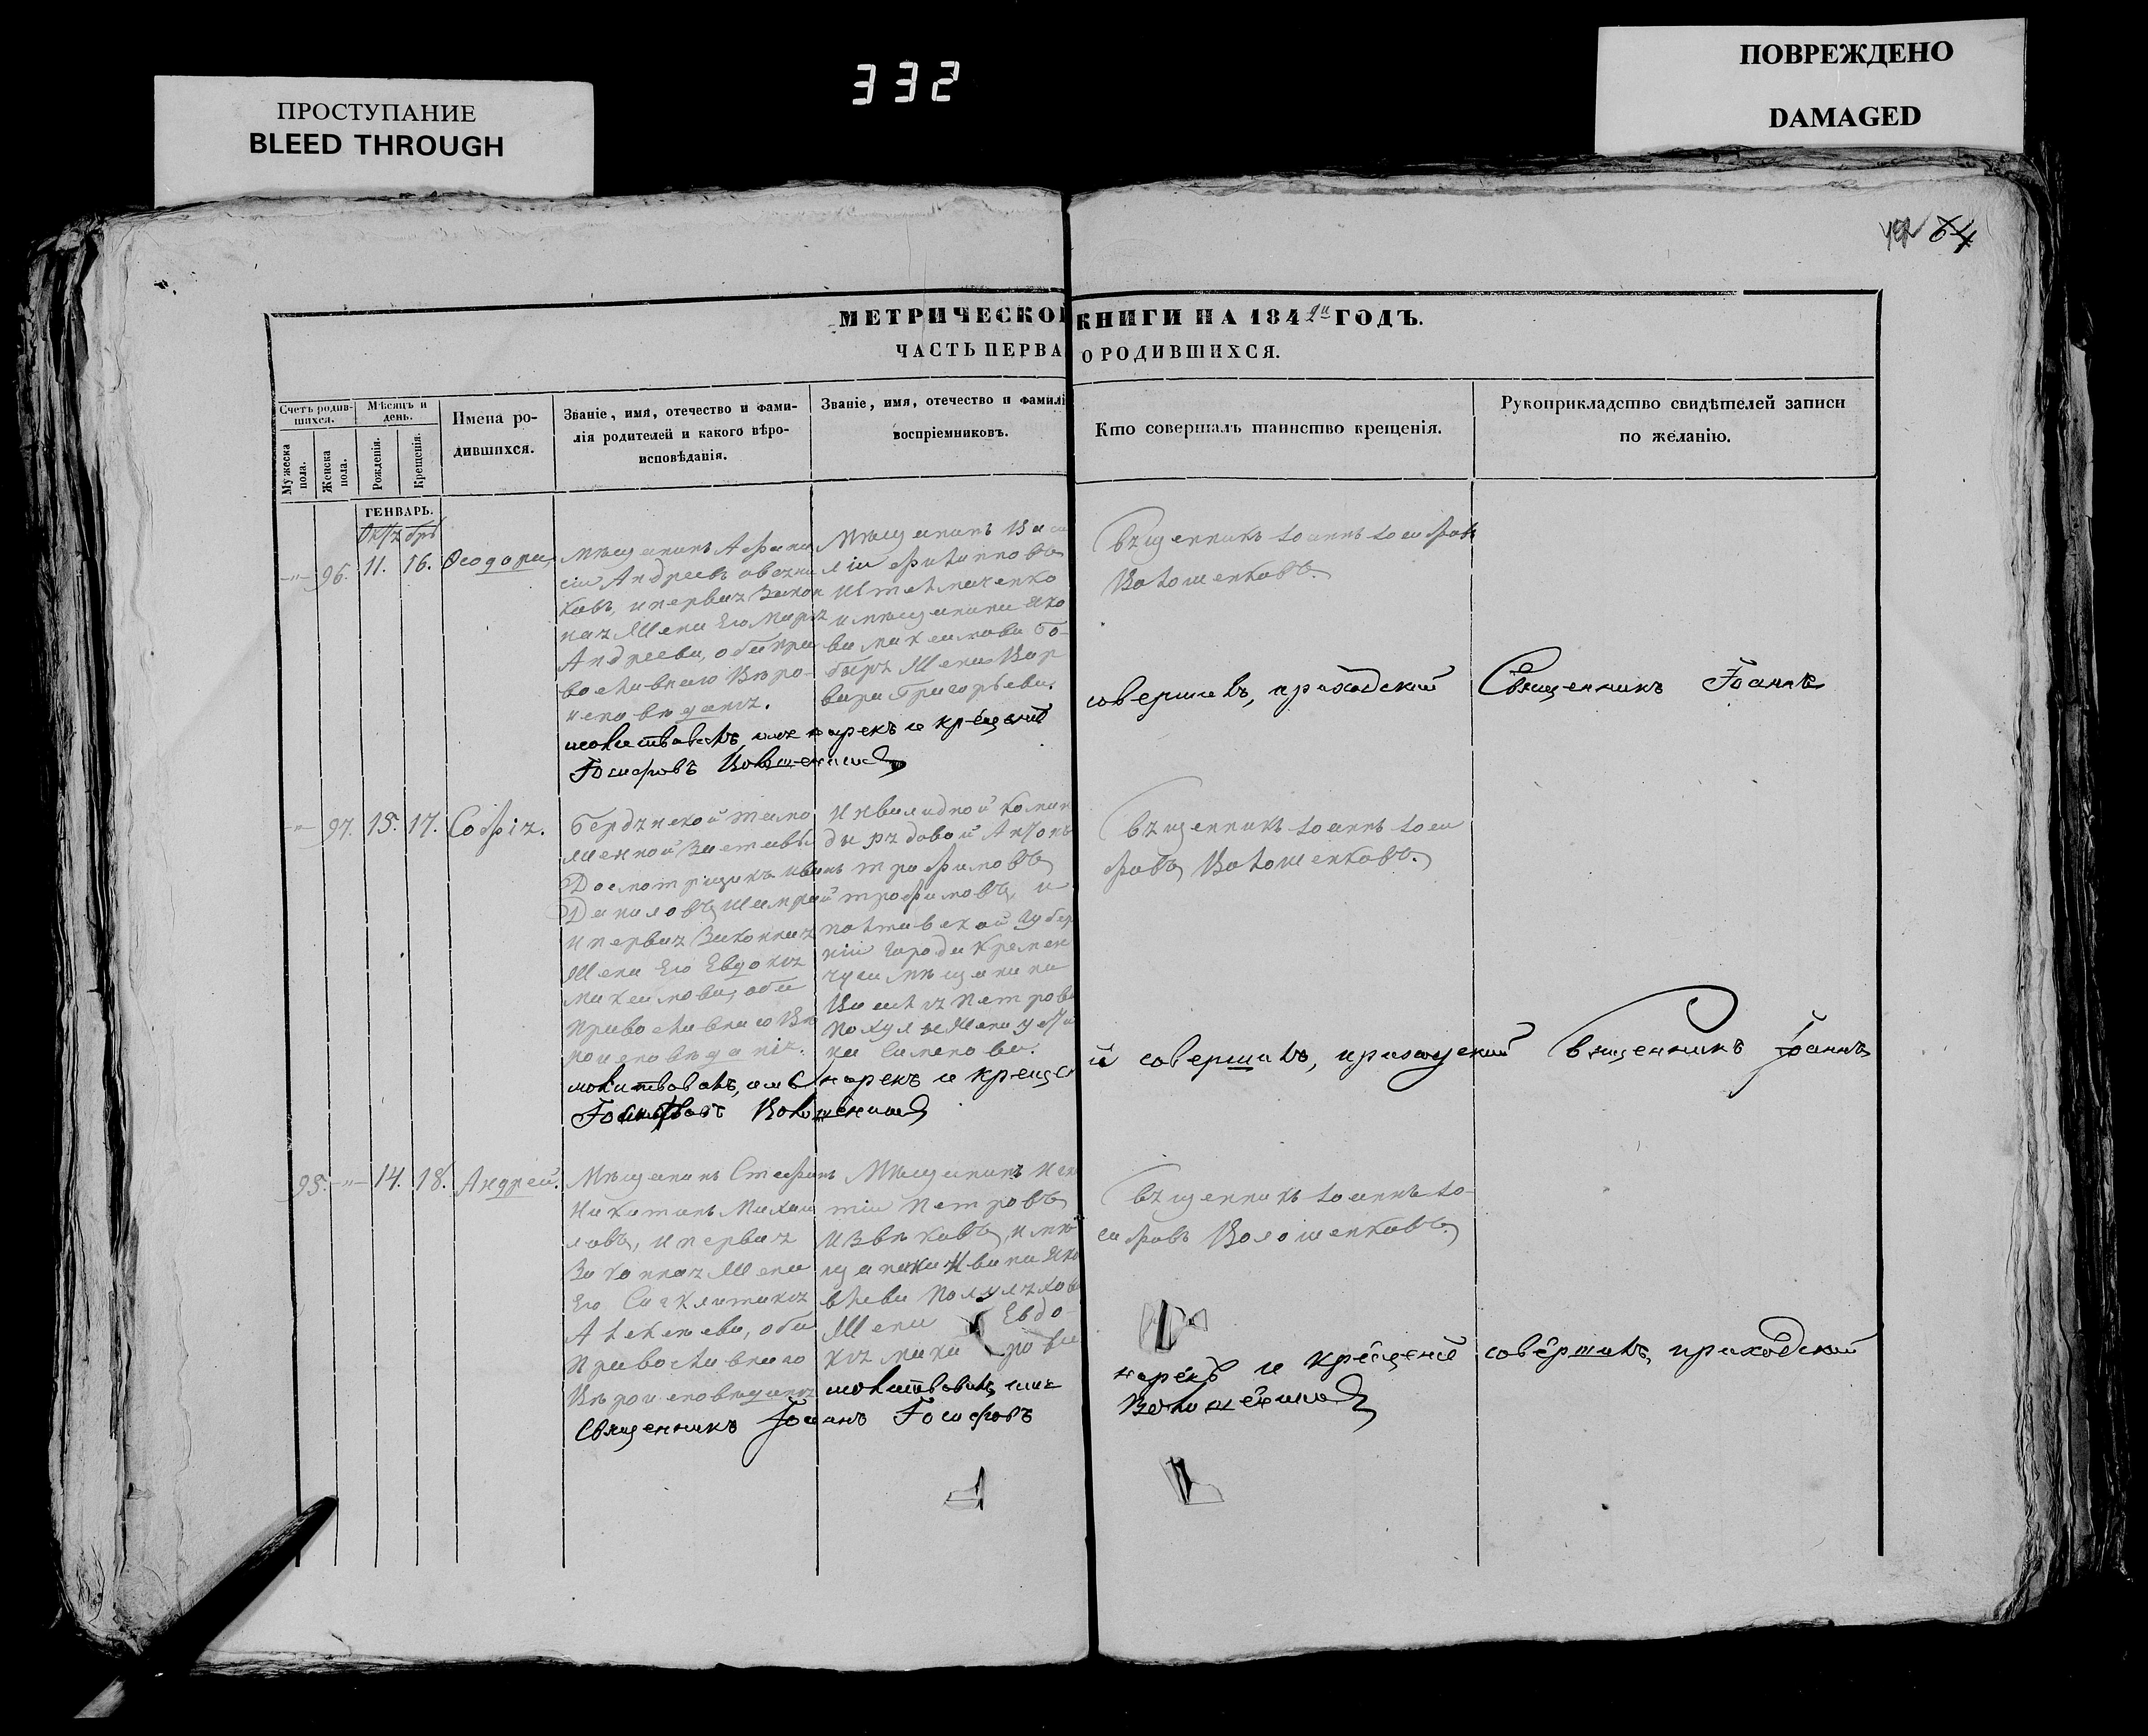 ПРОСТУПАНИЕ
BLEED THROUGH
332
ПОВРЕЖДЕНО
DAMAGED
84
МЕТРИЧЕСКОЙ КНИГИ НА 1842й ГОДЪ.
ЧАСТЬ ПЕРВА О РОДИВШИХСЯ.
Счетъ родив-
шихся.
Мужеска пола.
Женска пола.
Мѣсяцъ и
день.
Рожденія.
Крещенія.
Имена ро-
дившихся.
Званіе, имя, отечество и фами-
лія родителей и какого вѣро-
исповѣданія.
Званіе, имя, отечество и фамилі
воспріемниковъ.
Кто совершалъ таинство крещенія.
Рукоприкладство свидѣтелей записи
по желанію.
ГЕНВАРЬ.
Октября
-"- 96. 11. 16. Ѳеодора,
Мѣщанинъ Афана
сій Андреевъ
ковъ, и первая Закон
ная Жена Его Марѳ
Андреева, оба пра
вославнаго Вѣро-
исповѣданія.
Мѣщанинъ Васи
лій Филипповъ
и мѣщанина Яко
ва Максимова Бо-
быря Жена Вар
вара Григорьева.
Священникъ Іоаннъ Іосифовъ
Волошенковъ.
молитвовалъ, имя нарекъ и крещеніе совершалъ, приходскій Священникъ Іоаннъ
Іосифовъ Волошенковъ
-"- 97. 15. 17. Софія.
Бердянской тамо
женной Заставы
Досмотрщикъ Иванъ
Даниловъ
и первая Законная
Жена Его Евдокія
Максимова, оба
Православнаго Вѣ
роисповѣданія.
Инвалидной Коман
ды рядовой Антонъ
Трофимовъ
Трофимовъ, и
Полтавской Губер
ніи города Кремен
чуга мѣщанина
Василія Петрова
Жена
Семенова.
Священникъ Іоаннъ Іоси
фовъ Волошенковъ.
молитвовалъ, имя нарекъ и крещені
й совершалъ, приходскій Священникъ Іоаннъ
Іосифовъ Волошенковъ
95. -"- 14. 18. Андрей.
Мѣщанинъ Стефанъ
Никитинъ Михай
ловъ, и первая
Законная Жена
Его Синклитикія
Алексѣева, оба
Православнаго
Вѣроисповѣданія
Мѣщанинъ Игна
тій Петровъ
Извѣковъ, и мѣ
щанина Ивана Яко
влева Полуляхова
Жена Евдо-
кія
Священникъ Іоаннъ Іо-
сифовъ Волошенковъ.
молитвовалъ, имя нарекъ и крещеніе совершалъ, приходскій
Священникъ Іоаннъ Іосифовъ Волошенковъ